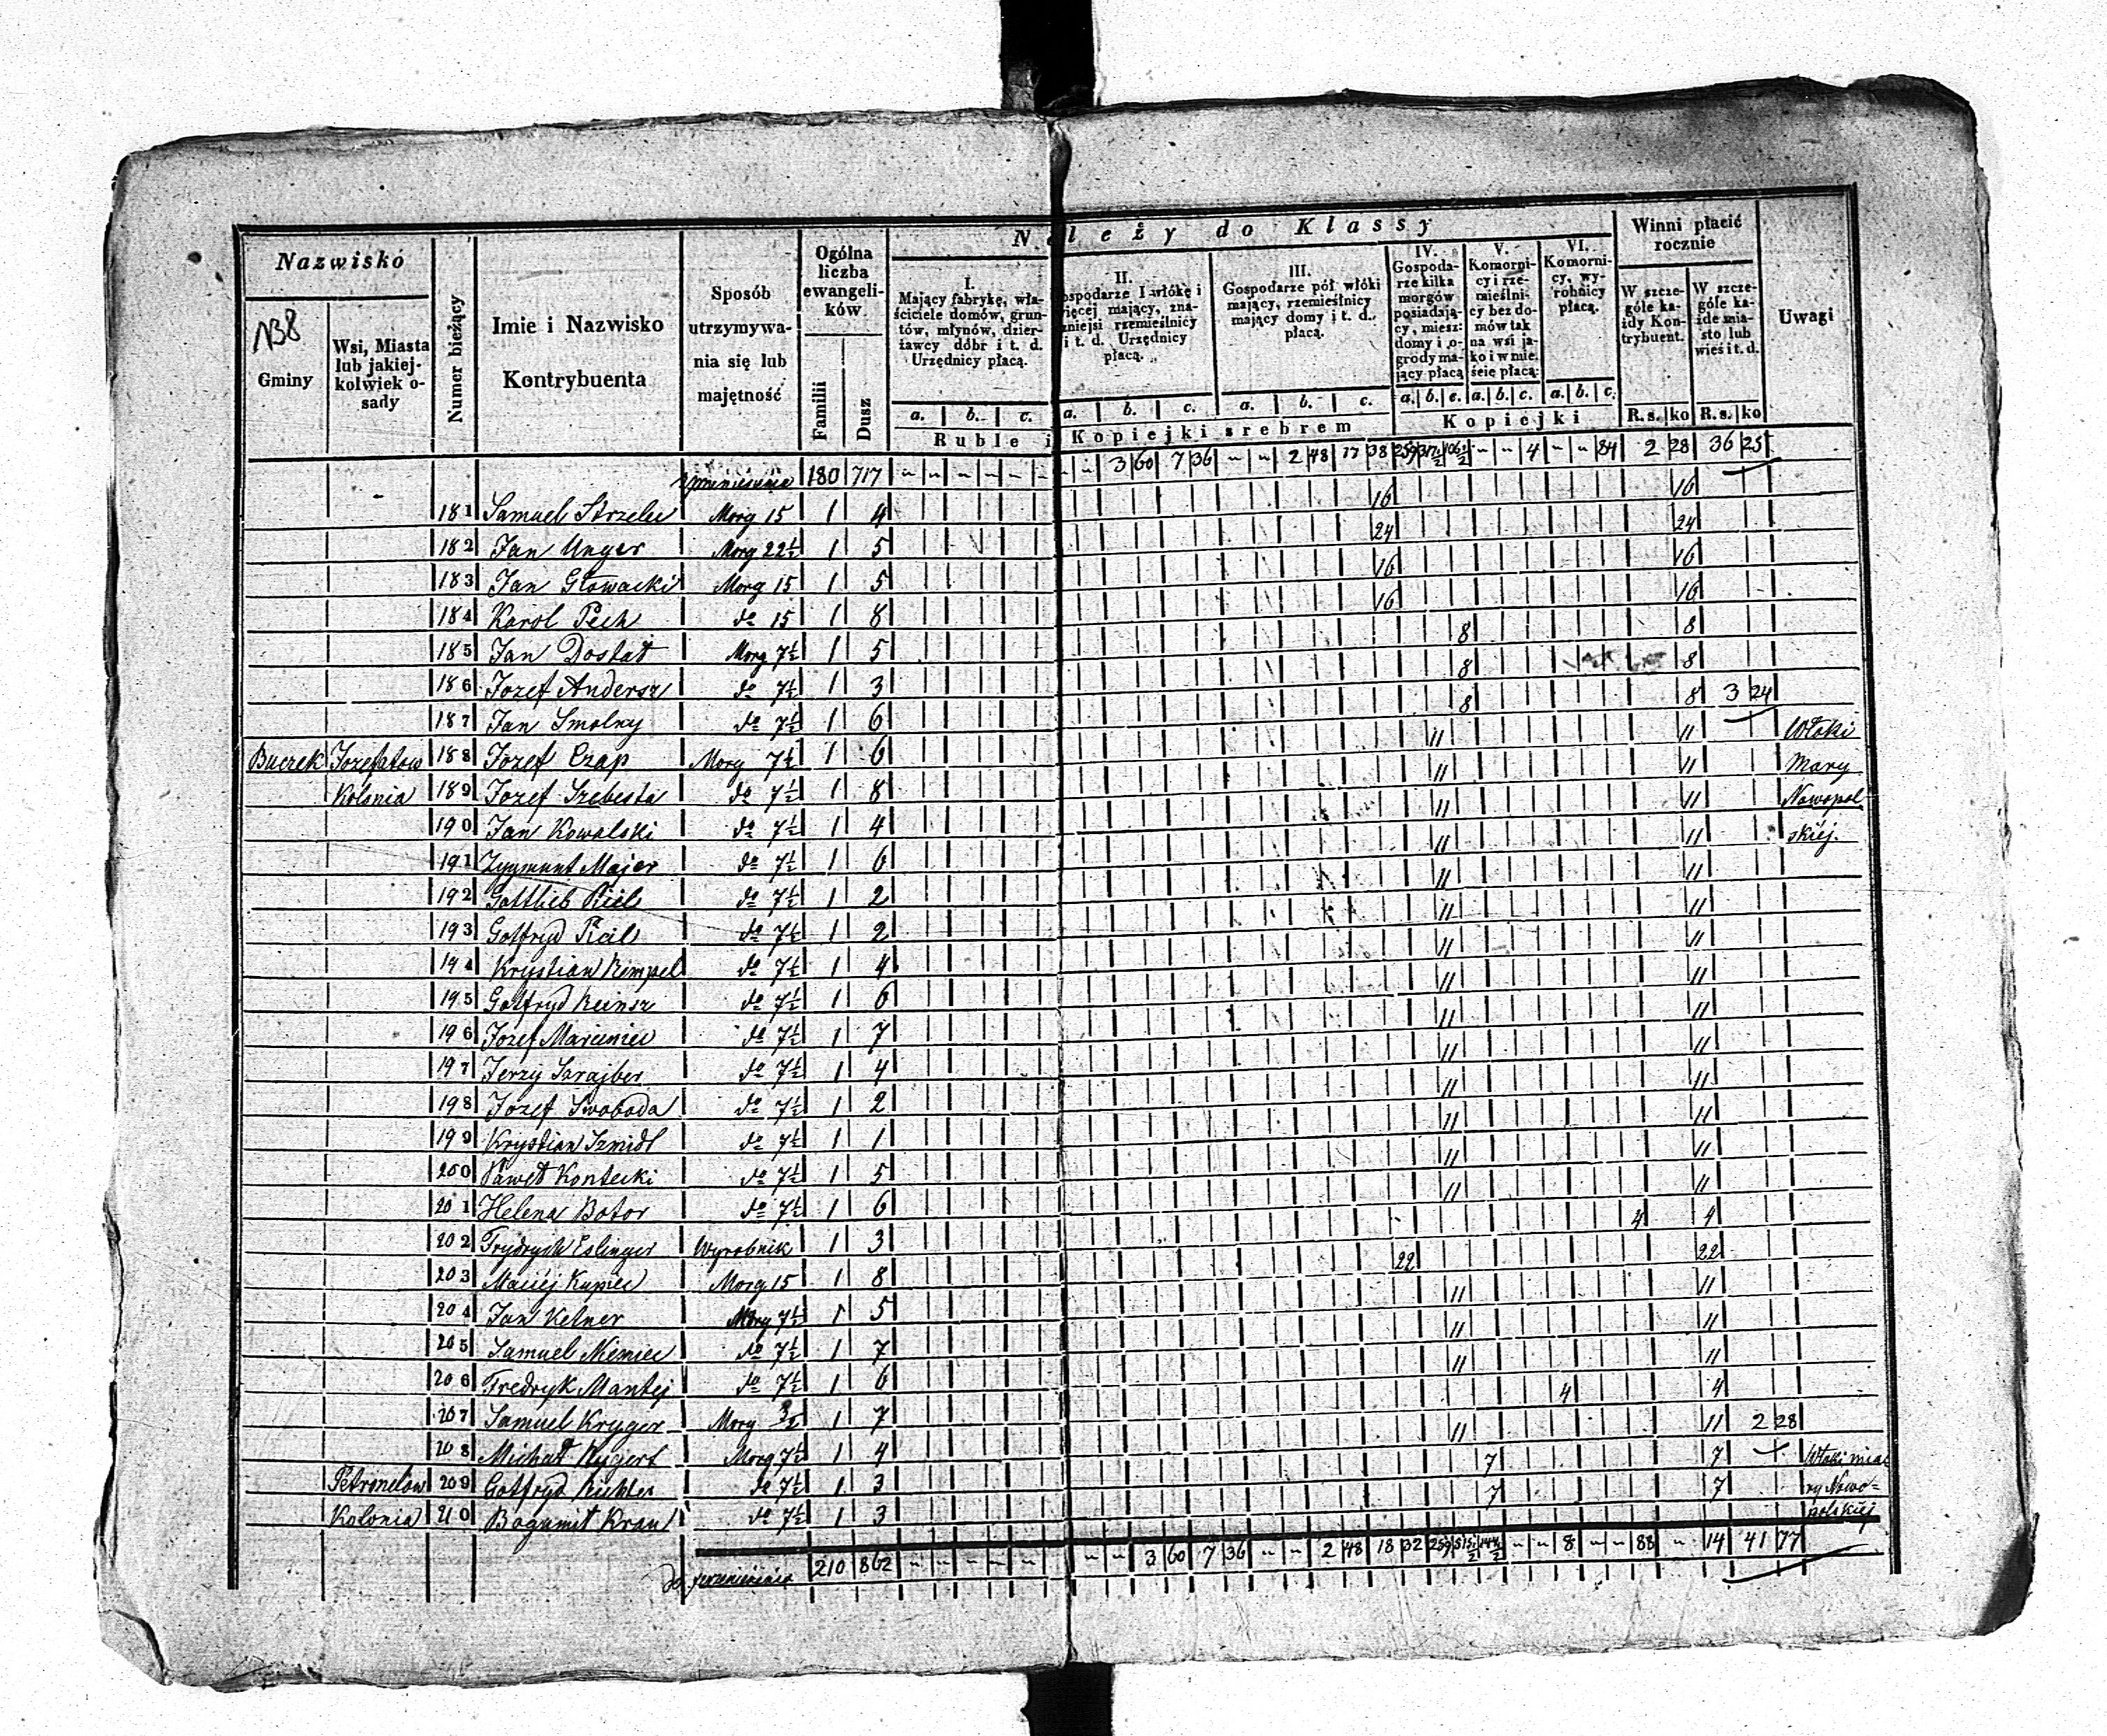 Nazwisko
Numer bieżący
Imie i Nazwisko
Kontrybuenta
Sposób
utrzymywa-
nia się lub
majętność
Ogólna
liczba
ewangeli-
ków
Familii
Dusz
Należy do Klassy
Winni płacić
rocznie
Uwagi
138
Gminy
Wsi, Miasta
lub jakiej-
kolwiek o-
sady
I.
Mający fabrykę, wła-
ściciele domów, grun-
tów, młynów, dzier-
żawcy dóbr i t. d.
Urzędnicy płacą.
II.
ospodarze I włókę i
więcej mający, zna-
niejsi rzemieślnicy
i t. d. Urzędnicy
płacą.
III.
Gospodarze pół włóki
mający, rzemieślnicy
mający domy i t. d.
płacą.
IV.
Gospoda-
rze kilka
morgów
posiadają-
cy, miesz:
domy i o-
grody ma-
jący płacą
V.
Komorni-
cy i rze-
mieślni-
cy bez do-
mów tak
na wsi ja-
ko i w mie.
ście płacą:
VI.
Komorni-
cy, wy-
robnicy
płacą.
W szcze-
góle ka-
żdy Kon-
trybuent.
W szcze-
góle ka-
żde mia-
sto lub
wieś i t. d.
a. b. c. a. b. c. a. b. c. a. b. c. a. b. c. a. b. c.
Ruble i Kopiejki srebrem Kopiejki R. s. ko R. s. ko
z przeniesienia 180 717 3 60 7 36 2 48 17 38 259 317½ 106½ 4 84 2 28 36 25
181 Samuel Strzelec Morg 15 1 4 16 16
182 Jan Unger Morg 22½ 1 5 24 24
183 Jan Głowacki Morg 15 1 5 16 16
184 Karol Pech do 15 1 8 16 16
185 Jan Dostał Morg 7½ 1 5 8 8
186 Jozef Andersz do 7½ 1 3 8 8
187 Jan Smolny do 7½ 1 6 8 8 3 24
Buczek Jozefatow 188 Jozef Czap Morg 7½ 1 6 11 11 Włoki
Kolonia 189 Jozef Szebesta do 7½ 1 8 11 11 Mary
190 Jan Kowalski do 7½ 1 4 11 11 Nowopol
191 Zygmunt Majer do 7½ 1 6 11 11 skiéj.
192 Gottlieb Piel do 7½ 1 2 11 11
193 Gotfryd Piel do 7½ 1 2 11 11
194 Krystian Kimpel do 7½ 1 4 11 11
195 Gotfryd Keinsz do 7½ 1 6 11 11
196 Jozef Marciniec do 7½ 1 7 11 11
197 Jerzy Szrajber do 7½ 1 4 11 11
198 Jozef Swoboda do 7½ 1 2 11 11
199 Krystian Szmidt do 7½ 1 1 11 11
200 Paweł Kontecki do 7½ 1 5 11 11
201 Helena Botor do 7½ 1 6 11 11
202 Frydryk Eslinger Wyrobnik 1 3 4 4
203 Maciéj Kupiec Morg 15 1 8 22 22
204 Jan Kelner Morg 7½ 1 5 11 11
205 Samuel Niemiec do 7½ 1 7 11 11
206 Fredryk Mantej do 7½ 1 6 11 11
207 Samuel Kryger Morg 1 7 4 4
208 Michał Rygert Morg 7½ 1 4 11 11 2 28
Petronelow 209 Gotfryd Richter do 7½ 1 3 7 7 Włoki mia
Kolonia 210 Bogumił Krau do 7½ 1 3 7 7 ry Nowo=
polskiéj
do przeniesienia 210 862 3 60 7 36 2 48 18 32 259 515½ 144½ 8 88 14 41 77